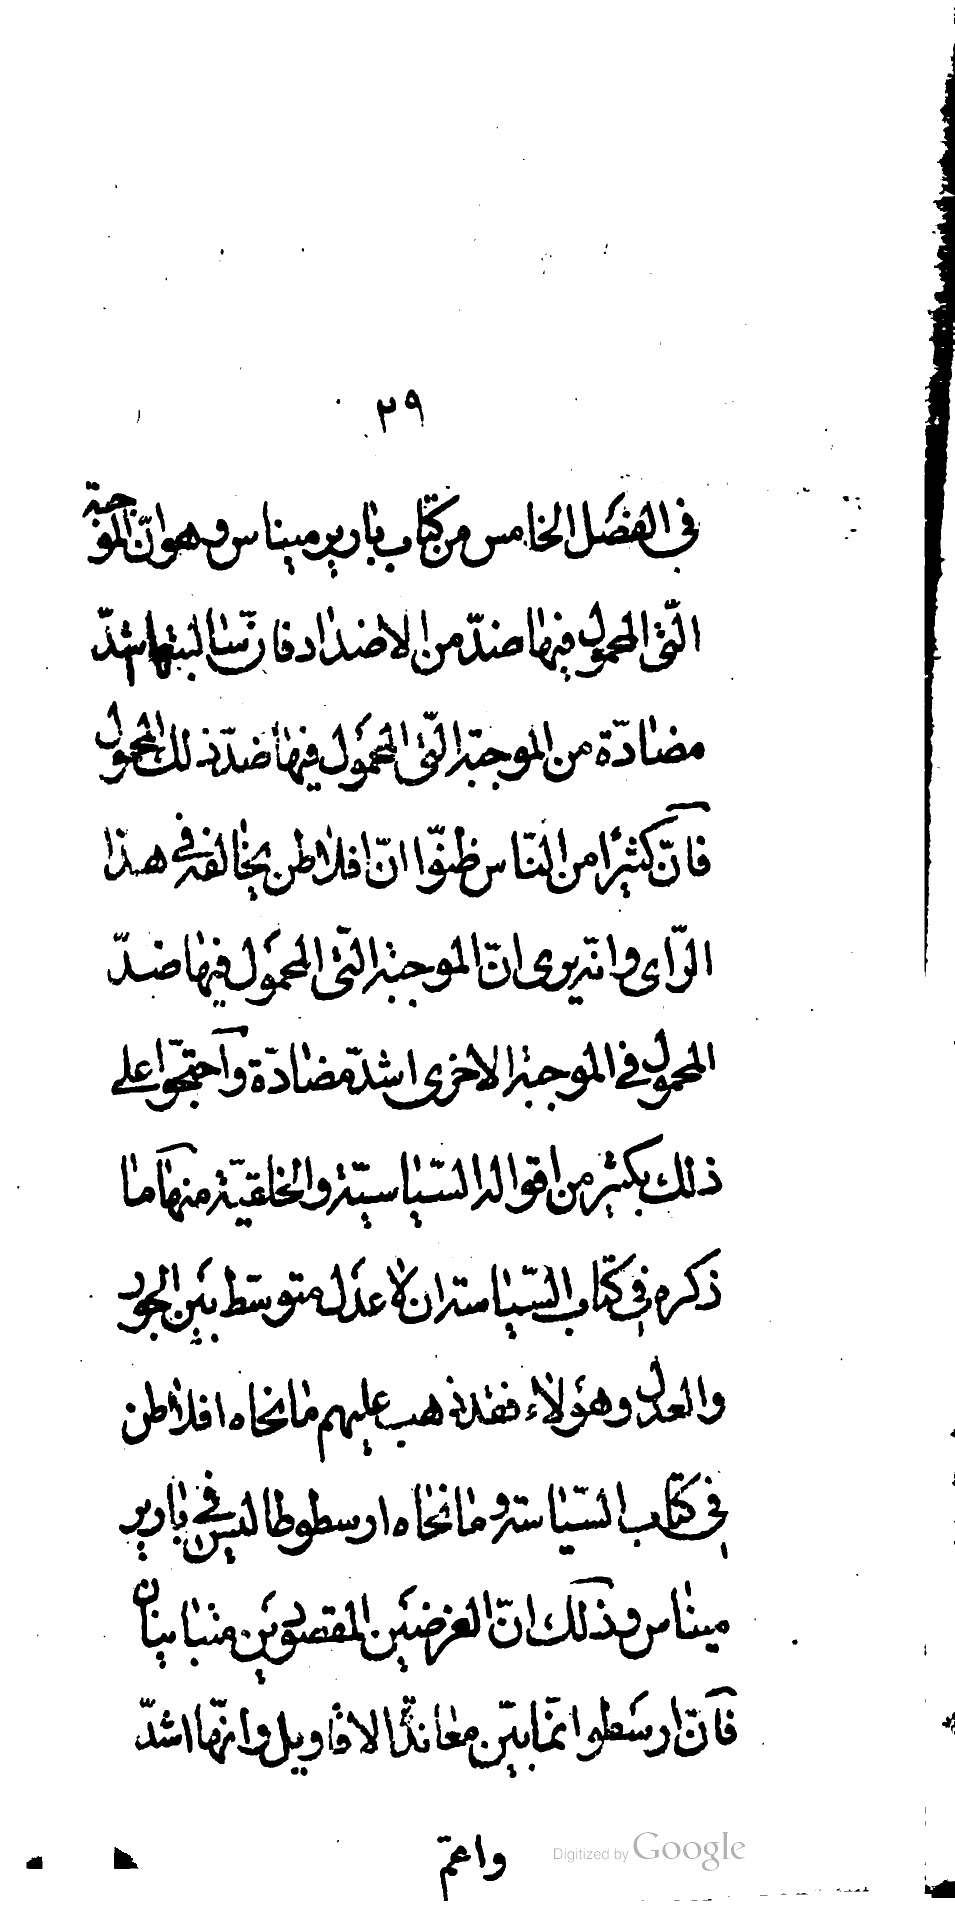 ٢٩
في الفصل الخامس من كتاب باريرميناس وهو انّ الموجبة
الّتى المحمول فيها ضدّ من الاضداد فانّ سالبتها اشدّ
مضادّة من الموجبة الّتى المحمول فيها ضدّ ذلك المحمول
فانّ كثيرا من النّاس ظنّوا انّ افلاطن يخالفه فى هذا
الرّاى وانّه يرى انّ الموجبة الّتى المحمول فيها ضدّ
المحمول فى الموجبة الاخرى اشدّ مضادّة واحتجّوا على
ذلك بكثير من اقواله السّياسيّة والخلقيّة منها ما
ذكره فى كتاب السّياسة ان الاعدل متوسّط بين الجور
والعدل وهؤلاء فقد ذهب عليهم ما نحاه افلاطن
فى كتاب السّياسة وما نحاه ارسطوطاليس فى بارير
ميناس وذلك انّ الغرضين المقصودين متباينان
فانّ ارسطو انّما بيّن معاندة الاقاويل وانّها اشدّ
واعمّ
Digitized by Google